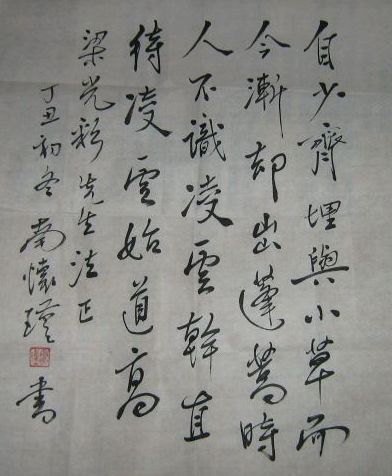 自少齊埋與小草而
今漸却出蓬蒿時
人不識凌雲幹直
待凌雲始道高
梁光彩先生法正
丁丑初冬南懷瑾書